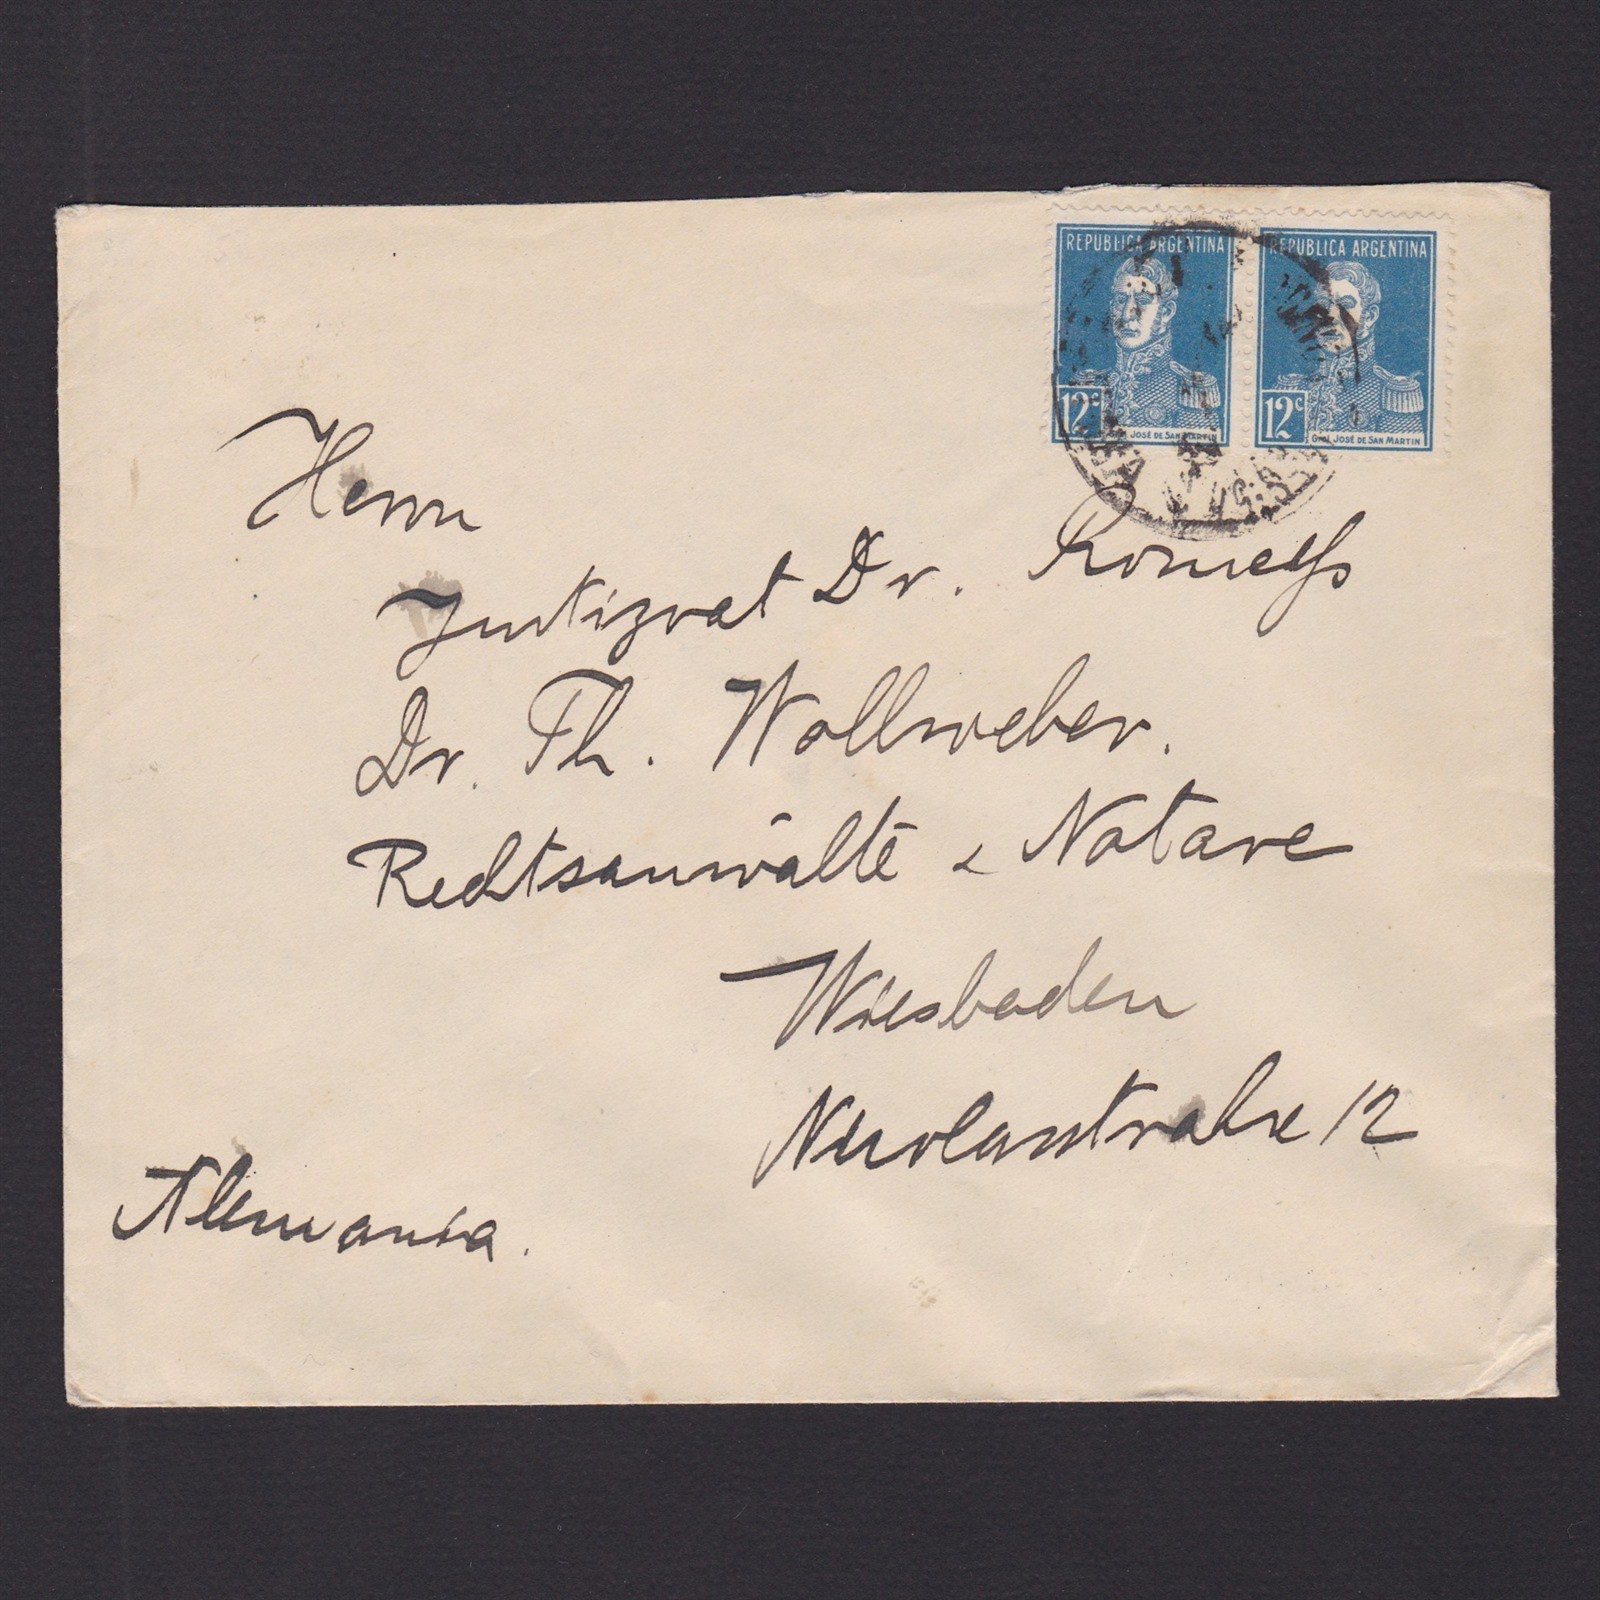 REPUBLICA ARGENTINA REPUBLICA ARGENTINA
12c 12c
JOSÉ DE SAN MARTIN Gral. JOSÉ DE SAN MARTIN
Herrn
Justizrat Dr. Romeiß
Dr. Th. Wollweber.
Rechtsanwälte & Notare
Wiesbaden
Nicolasstraße 12
Alemania.